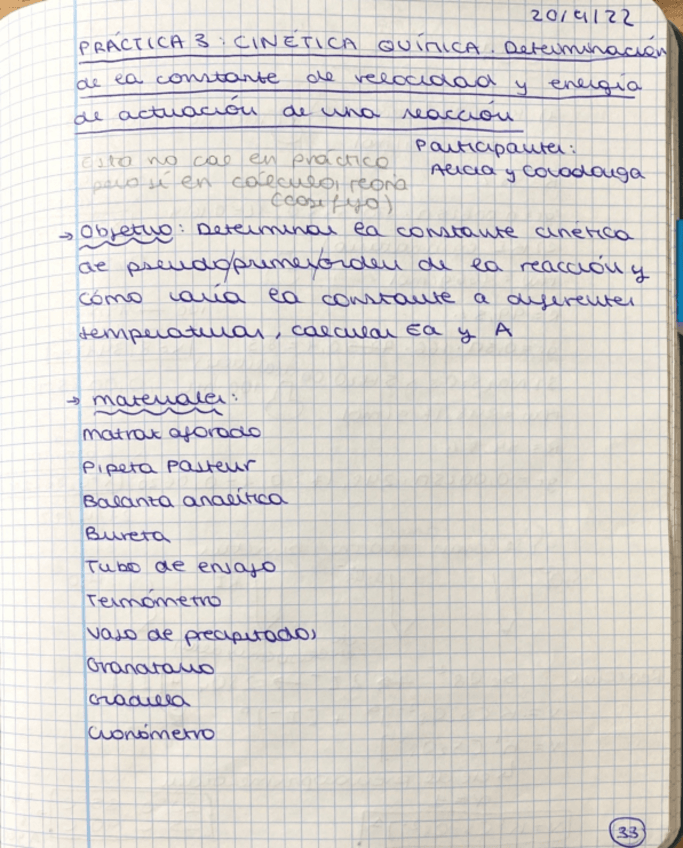 20/4/22
PRÁCTICA 3: CINÉTICA QUÍMICA. Determinación
de la constante de velocidad y energía
de actuación de una reacción
Participantes:
Alicia y Covadonga
Esto no cae en práctico
pero sí en cálculo, teoría
(casi fijo)
→ Objetivo: Determinar la constante cinética
de pseudo/primer/orden de la reacción y
cómo varía la constante a diferentes
temperaturas, calcular Ea y A
→ materiales:
Matraz aforado
Pipeta Pasteur
Balanza analítica
Bureta
Tubo de ensayo
Termómetro
Vaso de precipitados
Granatario
Gradilla
Cronómetro
33